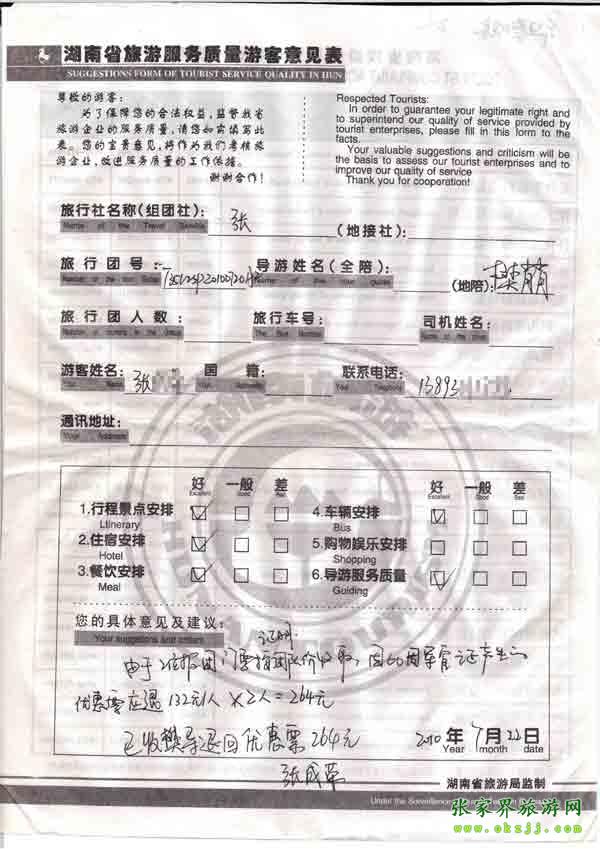 湖南省旅游服务质量游客意见表
SUGGESTIONS FORM OF TOURIST SERVICE QUALITY IN HUN
尊敬的游客:
为了保障您的合法权益,监督我省
旅游企业的服务质量,请您如实填写此
表。您的宝贵意见,将作为我们考核旅
游企业,改进服务质量的工作依据。
谢谢合作!
Respected Tourists:
In order to guarantee your legitimate right and
to superintend our quality of service provided by
tourist enterprises, please fill in this form to the
facts.
Your valuable suggestions and criticism will be
the basis to assess our tourist enterprises and to
improve our quality of service
Thank you for cooperation!
旅行社名称(组团社): 张 (地接社):
Name of the Travel Service
旅行团号: 导游姓名(全陪): (地陪):樊萌
Name of the guide
旅行团人数: 旅行车号: 司机姓名:
The Bus Number
游客姓名: 张 国籍: 联系电话: 13893
Your Name Your Nationality Your Telephone
通讯地址:
Your Address
好 一般 差 好 一般 差
Excellent Good Bad Excellent Good Bad
1.行程景点安排 4.车辆安排
Ltinerary Bus
2.住宿安排 5.购物娱乐安排
Hotel Shopping
3.餐饮安排 6.导游服务质量
Meal Guiding
您的具体意见及建议: 证明
Your suggestions and orders
由于 报团门票按团队价收取,因 军官证产生的
优惠票应退132元/人×2人=264元
已收樊导退回优惠票264元 2010年7月22日
Year month date
张成第
湖南省旅游局监制
Under the Surveillance
张家界旅游网
www.okzjj.com